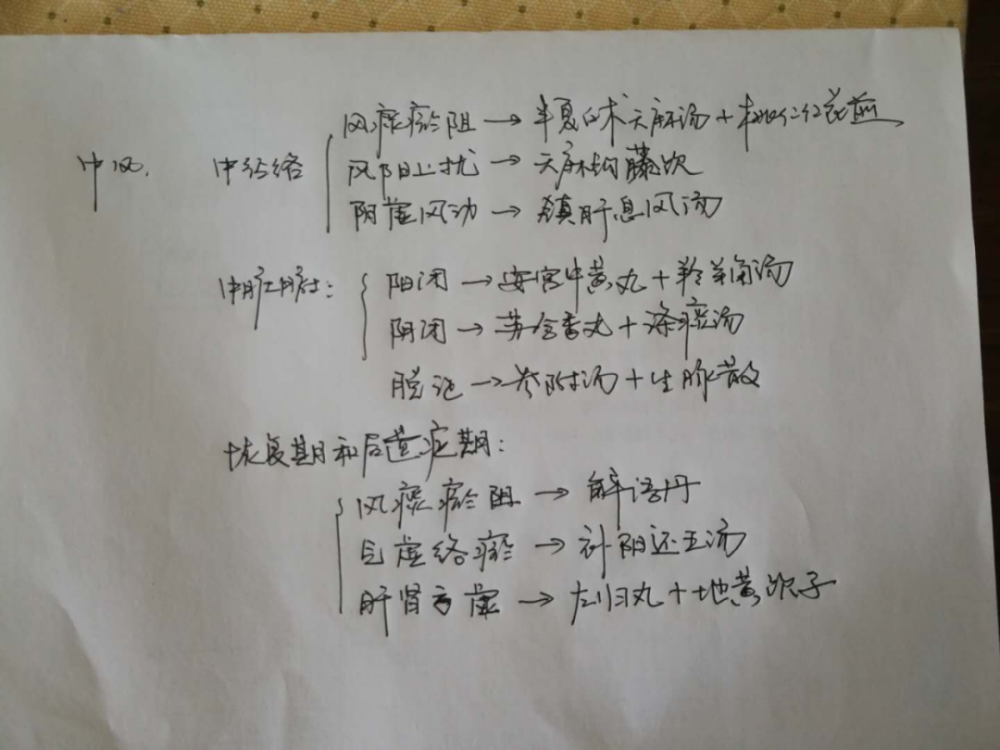 风痰瘀阻→半夏白术天麻汤+桃仁红花煎
中风. 中经络 风阳上扰→天麻钩藤饮
阴虚风动→镇肝息风汤
中脏腑: 阳闭→安宫牛黄丸+羚羊角汤
阴闭→苏合香丸+涤痰汤
脱证→参附汤+生脉散
恢复期和后遗症期:
风痰瘀阻→解语丹
气虚络瘀→补阳还五汤
肝肾亏虚→左归丸+地黄饮子